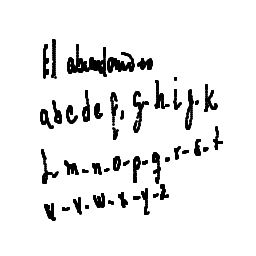 El abundonado
a b c d e f, g. h. i j. k
l m - n - o - p - q . r - s . t
u - v - w - x - y - z